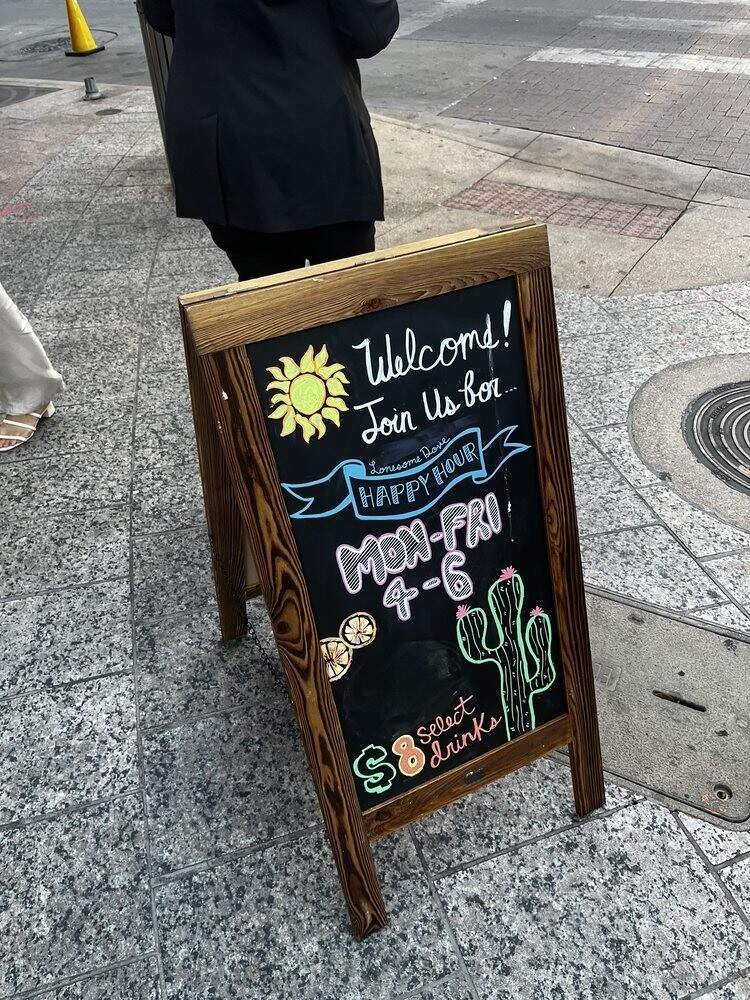 Welcome!
Join Us for...
Lonesome Dove
HAPPY HOUR
MON-FRI
4-6
$8 select
drinks